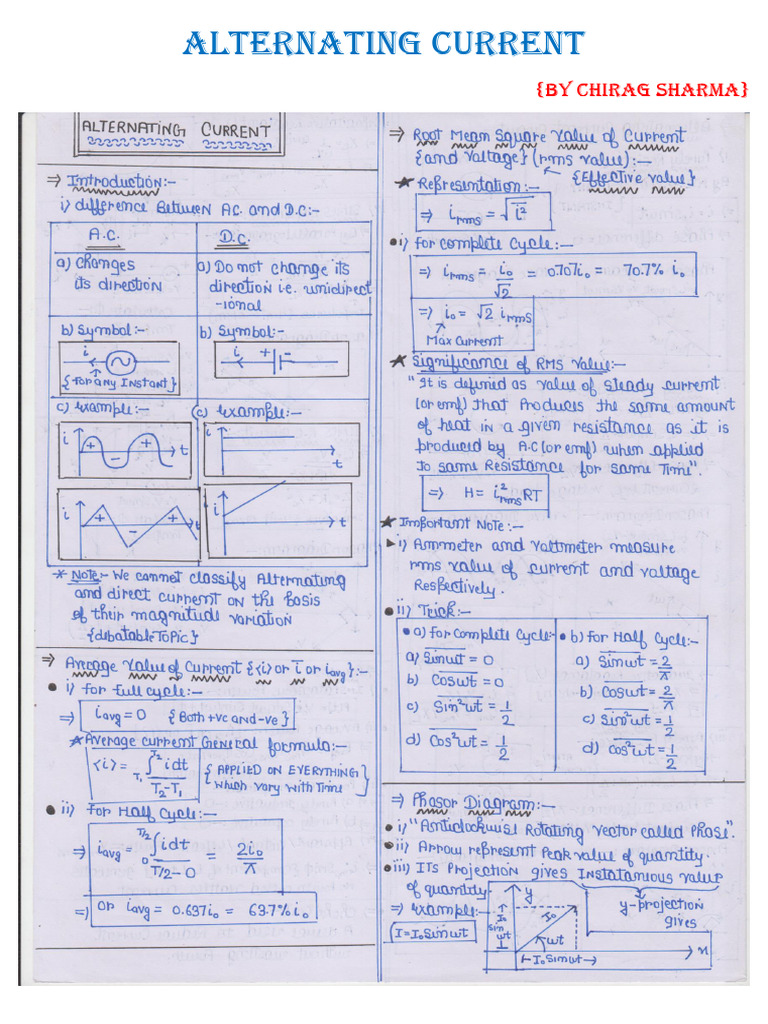 ALTERNATING CURRENT
{BY CHIRAG SHARMA}
ALTERNATING CURRENT
⇒ Introduction:-
i) difference Between A.C. and D.C:-
A.C.
D.C.
a) Changes
its direction
a) Do not change its
direction i.e. unidirect
-ional
b) Symbol:-
i
{For any Instant}
b) Symbol:-
i + -
c) example:-
i + - + t
i + - + t
(c) example:-
i t
i t
* Note:- We cannot classify Alternating
and direct current on the basis
of their magnitude variation
{debatable Topic}
⇒ Average Value of Current {<i> or i̅ or iavg}:-
• i) For Full cycle:-
⇒ iavg = 0 {Both +ve and -ve}
* Average current General formula:-
<i> = T1∫T2 idt / T2-T1
{APPLIED ON EVERYTHING
which vary with Time}
• ii) For Half Cycle:-
⇒ iavg = 0∫T/2 idt / T/2-0 = 2i0/π
⇒ or iavg = 0.637i0 = 63.7% i0
⇒ Root Mean Square Value of Current
{and Valtage} (rms value):-
{Effective value}
★ Representation:-
⇒ irms = √i̅²
• i) for complete cycle:-
⇒ irms = i0/√2 = 0.707i0 = 70.7% i0
⇒ i0 = √2 irms
Max Current
★ Significance of RMS Value:-
"It is defined as value of steady current
(or emf) that Produces the same amount
of heat in a given resistance as it is
produced by A.C (or emf) when applied
to same Resistance for same Time".
⇒ H = i²rms RT
★ Important Note:-
▸ i) Ammeter and Valtmeter measure
rms value of current and valtage
Respectively.
• ii) Trick:-
• a) For complete Cycle:-
a) Sinωt = 0
b) Cosωt = 0
c) Sin²ωt = 1/2
d) Cos²ωt = 1/2
• b) For Half Cycle:-
a) Sinωt = 2/π
b) Cosωt = 2/π
c) Sin²ωt = 1/2
d) Cos²ωt = 1/2
⇒ Phasor Diagram:-
• i) "Anticlockwise Rotating Vector called Phase".
• ii) Arrow represent Peak value of quantity.
• iii) Its Projection gives Instataneous value
of quantity
⇒ example:-
I = I0 Sinωt
y
I0
sin
ωt
ωt
x
I0 Sinωt
y-projection
gives